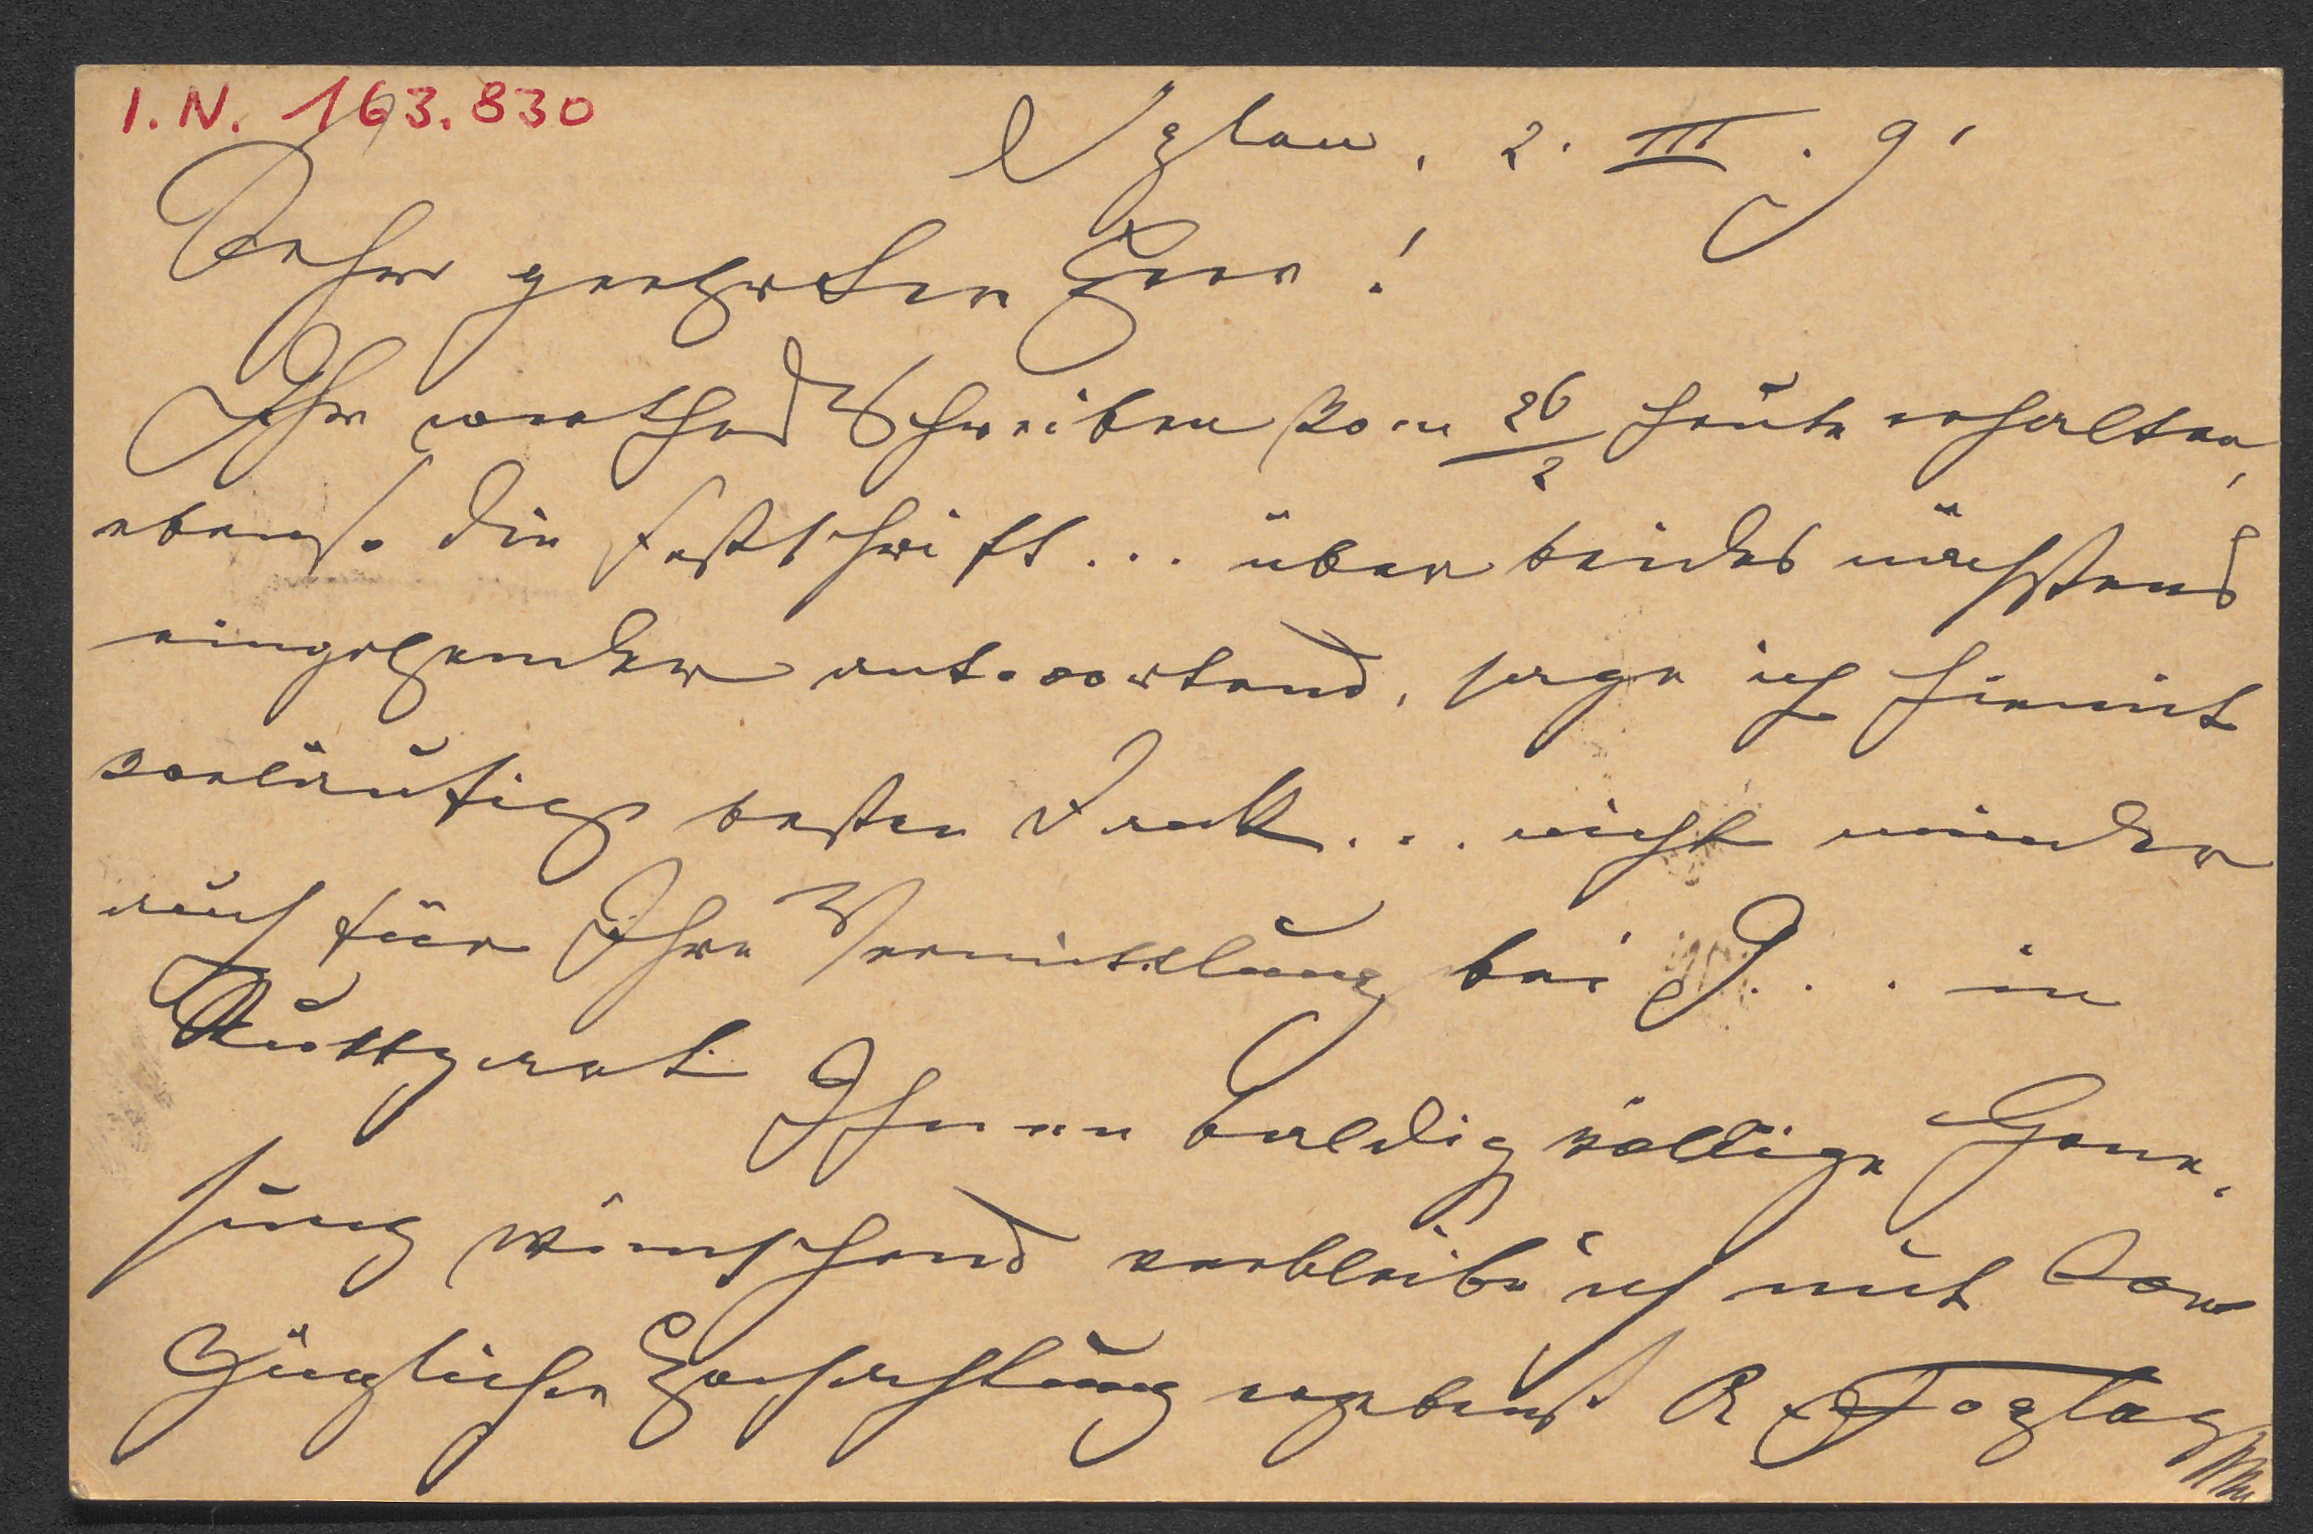 I.N. 163.830
Iglau, 2. III. 91
Sehr geehrter Herr!
Ihr werthes Schreiben vom 26/2 heute erhalten,
ebenso die Festschrift... über beides nächstens
eingehender antwortend, sage ich hiemit
vorläufig besten Dank... nicht minder
auch für Ihre Vermittlung bei J... in
Stuttgart. Ihnen baldig völlige Gene-
sung wünschend verbleibe ich mit vor
züglicher Hochachtung ergebenst R